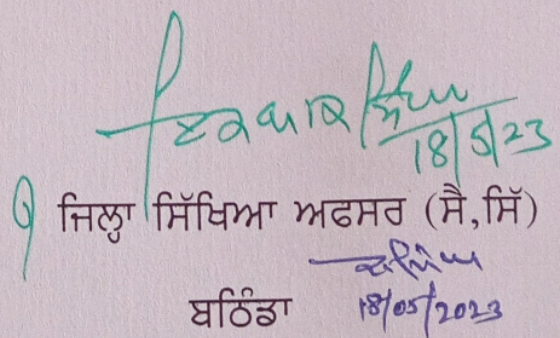 18/5/23
ਜਿਲ੍ਹਾ ਸਿੱਖਿਆ ਅਫਸਰ (ਸੈ,ਸਿੱ)
ਬਠਿੰਡਾ 18/05/2023